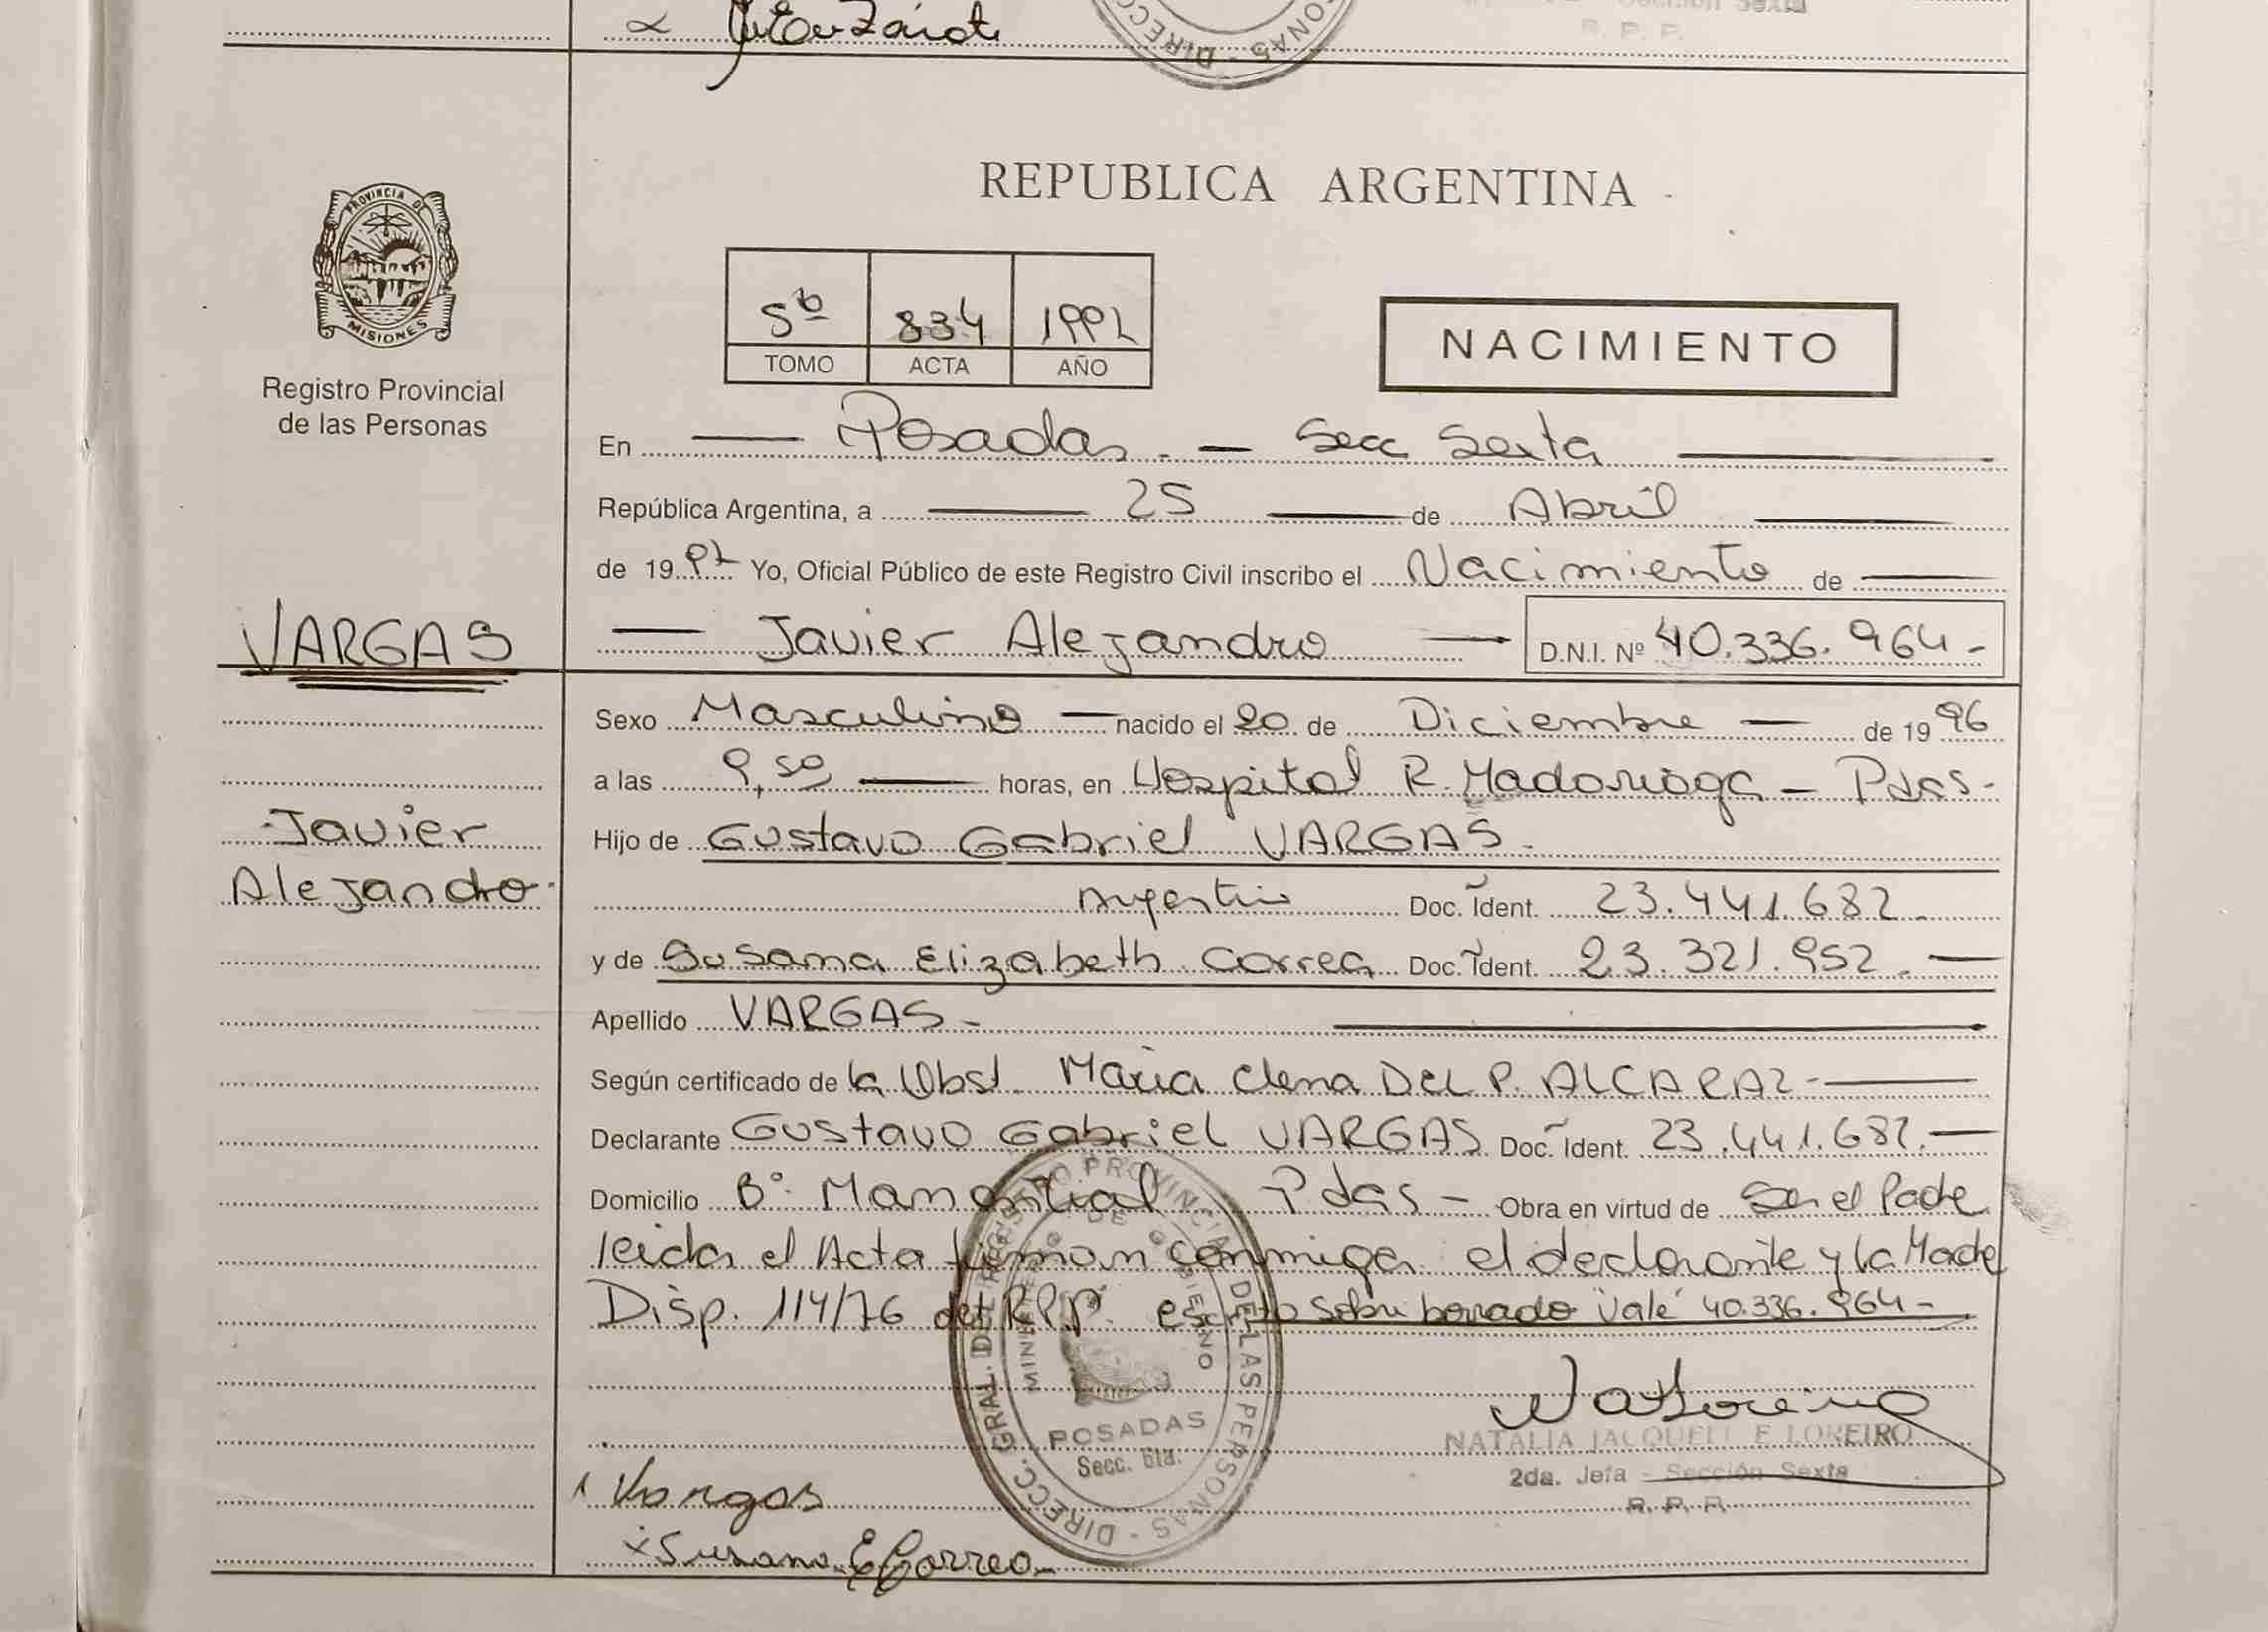 Sección Sexta
R. P. P.
DIRECC
PROVINCIA DE
MISIONES
Registro Provincial
de las Personas
REPUBLICA ARGENTINA
5º 834 1997
TOMO ACTA AÑO
NACIMIENTO
En Posadas. - Secc Sexta
República Argentina, a 25 de Abril
de 1997 Yo, Oficial Público de este Registro Civil inscribo el Nacimiento de
VARGAS
Javier Alejandro D.N.I. Nº 40.336.964-
Sexo Masculino nacido el 20 de Diciembre de 1996
a las 9,50 horas, en Hospital R. Madariaga - Pdas-
Javier
Hijo de Gustavo Gabriel VARGAS.
Alejandro.
Argentino Doc. Ident. 23.441.682
y de Susana Elizabeth Correa Doc. Ident. 23.321.952.-
Apellido VARGAS-
Según certificado de la Obst. Maria Elena DEL P. ALCARAZ-
Declarante Gustavo Gabriel VARGAS Doc. Ident. 23.441.682.-
Domicilio Bº Manantial Pdas - Obra en virtud de Ser el Padre
leida el Acta firman conmigo el declarante y la Madre
Disp. 114/76 del RPP. escrito sobre borrado "vale" 40.336.964-
DIRECC. GRAL. DEL REGISTRO PROVINCIAL DE LAS PERSONAS
MINISTERIO DE GOBIERNO
POSADAS
Secc. 6ta.
NATALIA JACQUELINE LOREIRO
2da. Jefa - Sección Sexta
R. P. P.
Vargas
x Susana E Correa